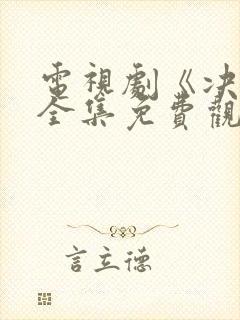 電視劇《決
全集免費觀
言立德